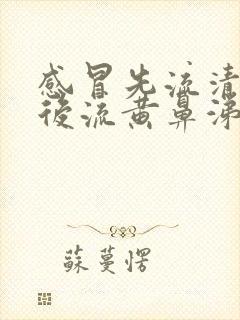 感冒先流清
後流黄鼻涕
蘇蔓愣